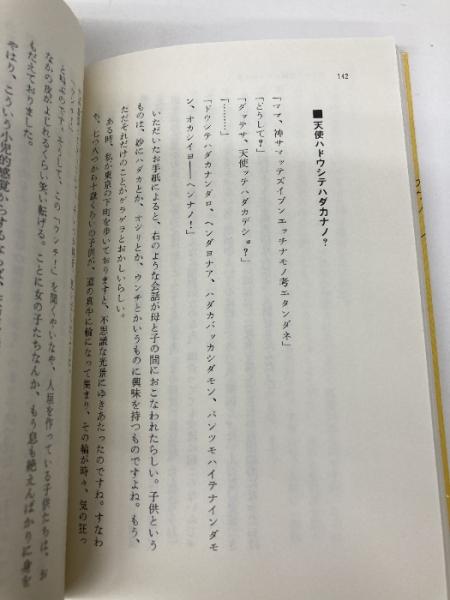 142
■天使ハドウシテハダカナノ?
「ママ、神サマッテズイブンエッチナモノ考エタンダネ」
「どうして?」
「ダッテサ、天使ッテハダカデショ。?」
「………」
「ドウシテハダカナンダロ、ヘンダヨナア、ハダカバッカシダモン、パンツモハイテナインダモ
ン、オカシイヨ――ヘンナノ!」
いただいたお手紙によると、右のような会話が母と子の間におこなわれたらしい。子供という
ものは、妙にハダカとか、オシリとか、ウンチとかいうものに興味を持つものですよね。もう、
ただそれだけのことがゲラゲラとおかしいらしい。
ある時、私が東京の下町を歩いておりますと、不思議な光景にゆきあたったのですね。すなわ
ち、七つ八つから十歳くらいの子供が、道の真中に輪になって集まり、その輪が時々、気の狂っ
「ウンチ!」を聞くやいなや、人垣を作っている子供たちは、お
なかの皮がよじれるくらい笑い転げる。ことに女の子たちなんか、もう息も絶えんばかりに身を
もだえておりました。
やはり、こういう小児的感覚からするならば、